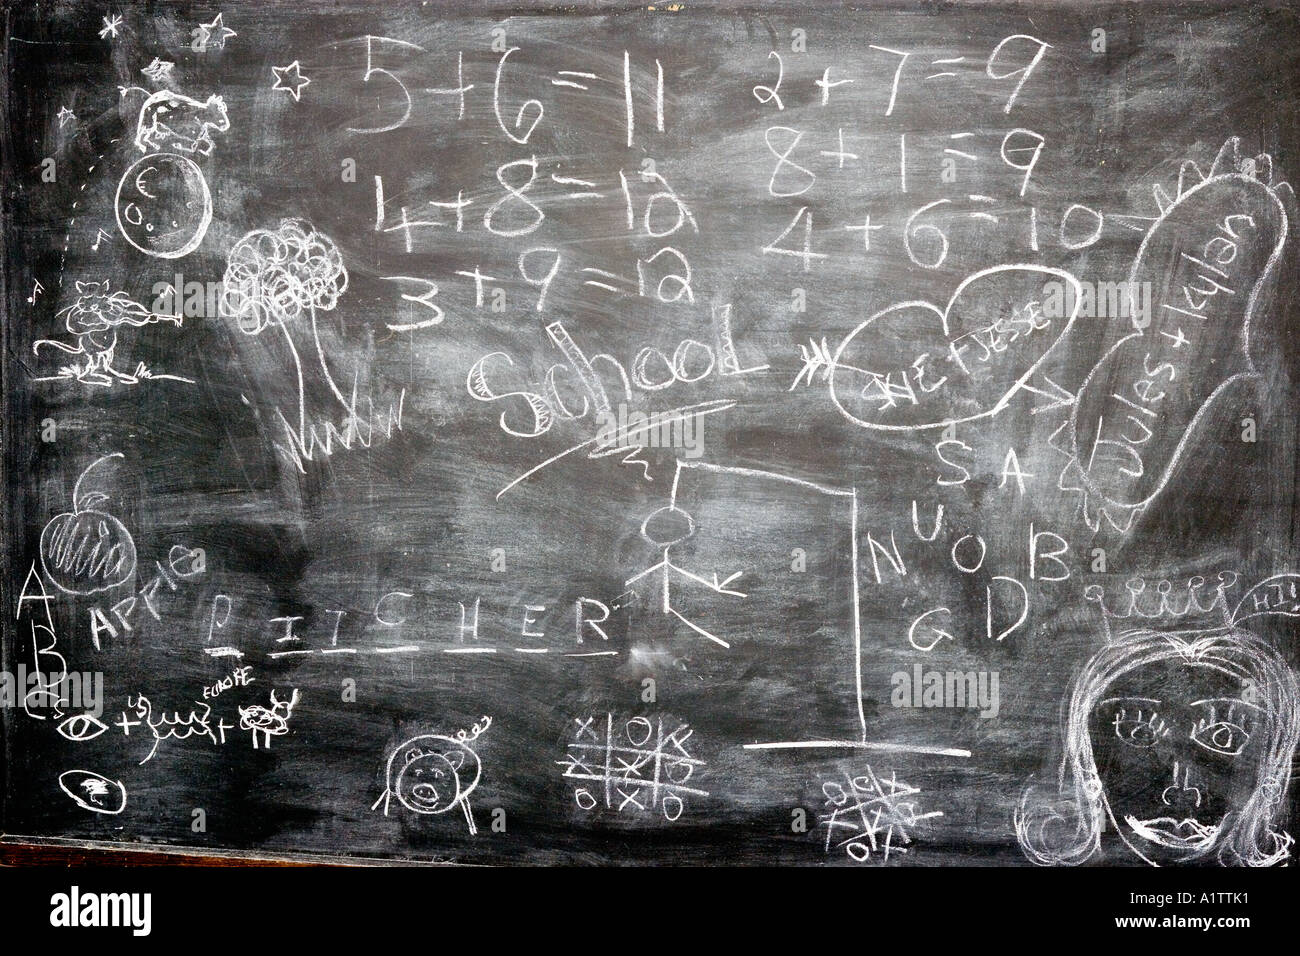 5 + 6 = 11
2 + 7 = 9
8 + 1 = 9
4 + 8 = 12
4 + 6 = 10
3 + 9 = 12
School
+ JESSE
Jules + Kylon
S A
N U O B
G D
APPLE
ABC
PITCHER
EUROPE
+ +
X O X
X X O
O X O
alamy
Image ID: A1TTK1
www.alamy.com